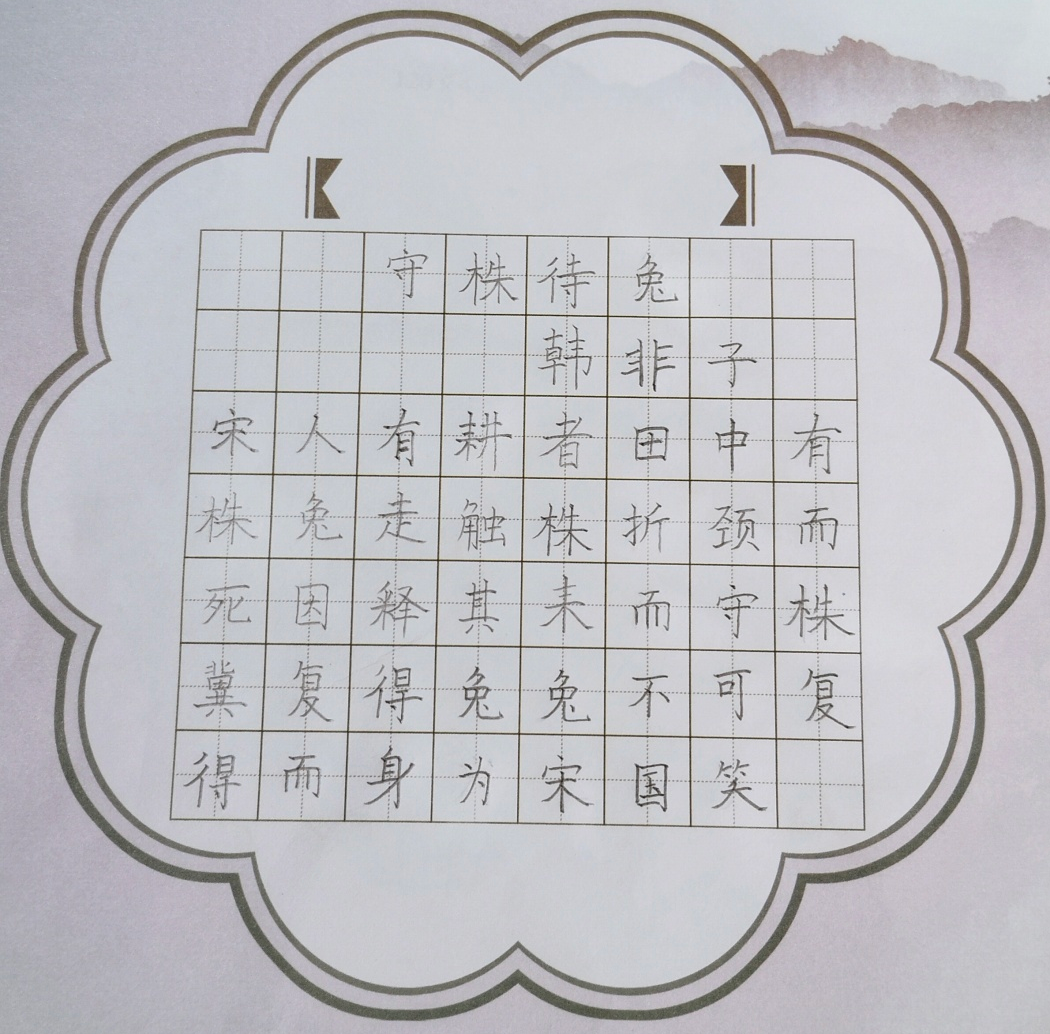 守株待兔
韩非子
宋人有耕者田中有
株兔走触株折颈而
死因释其耒而守株
冀复得兔兔不可复
得而身为宋国笑